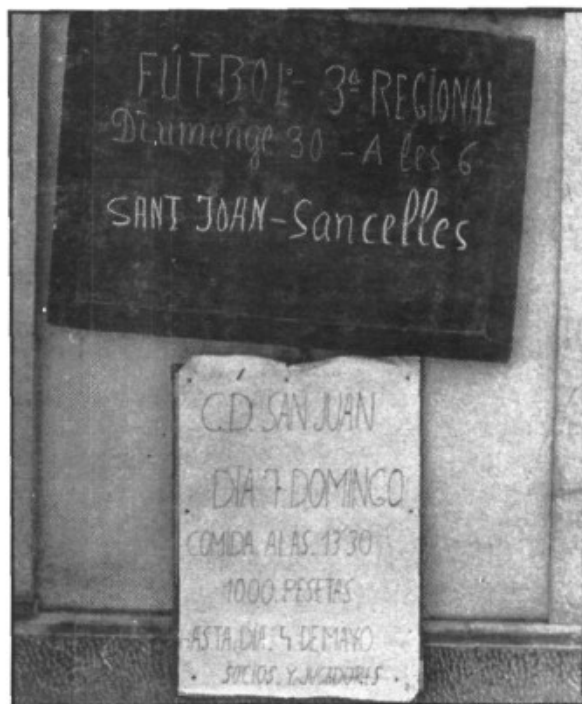 FÚTBOL - 3ª REGIONAL
Diumenge 30 - A les 6
SANT JOAN - Sancelles
C.D. SAN JUAN
DIA 7 DOMINGO
COMIDA. A LAS. 13'30
1000. PESETAS
ASTA. DIA. 4 DE MAYO
SOCIOS. Y. JUGADORES